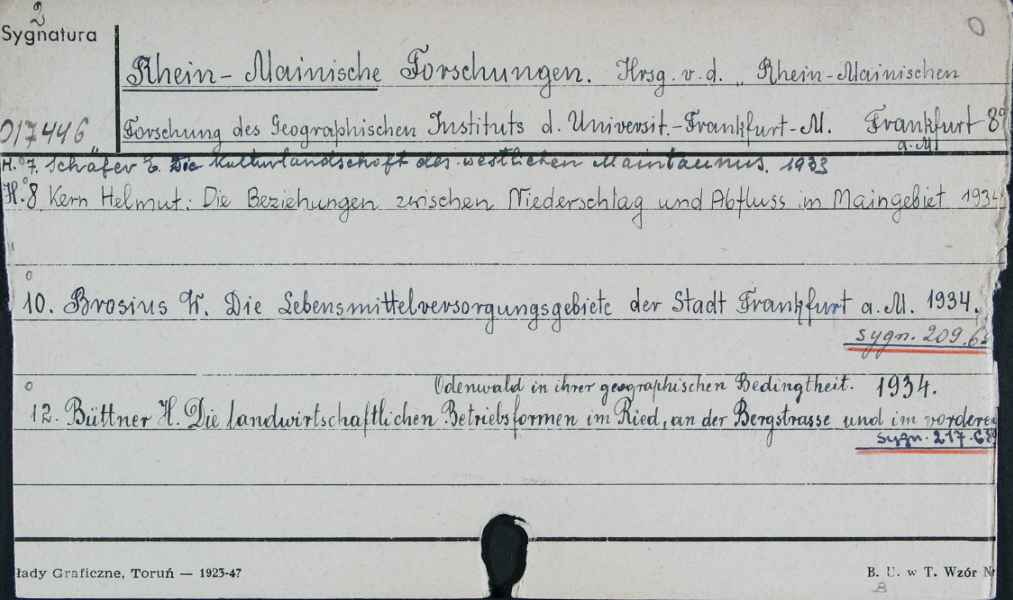 Sygnatura
Rhein-Mainische Forschungen. Hrsg. v. d. „ Rhein-Mainischen
017446 Forschung des Geographischen Instituts d. Universit.-Frankfurt-M. Frankfurt 8º
a.M
H. 7. Schäfer E. Die Kulturlandschaft des westlichen Maintaunus. 1933
H. 8. Kern Helmut: Die Beziehungen zwischen Niederschlag und Abfluss im Maingebiet 1934
10. Brosius W. Die Lebensmittelversorgungsgebiete der Stadt Frankfurt a.M. 1934.
sygn. 209.6
Odenwald in ihrer geographischen Bedingtheit. 1934.
12. Büttner H. Die landwirtschaftlichen Betriebsformen im Ried, an der Bergstrasse und im vorderen
sygn. 217.68
łady Graficzne, Toruń — 1923-47
B. U. w T. Wzór N
B